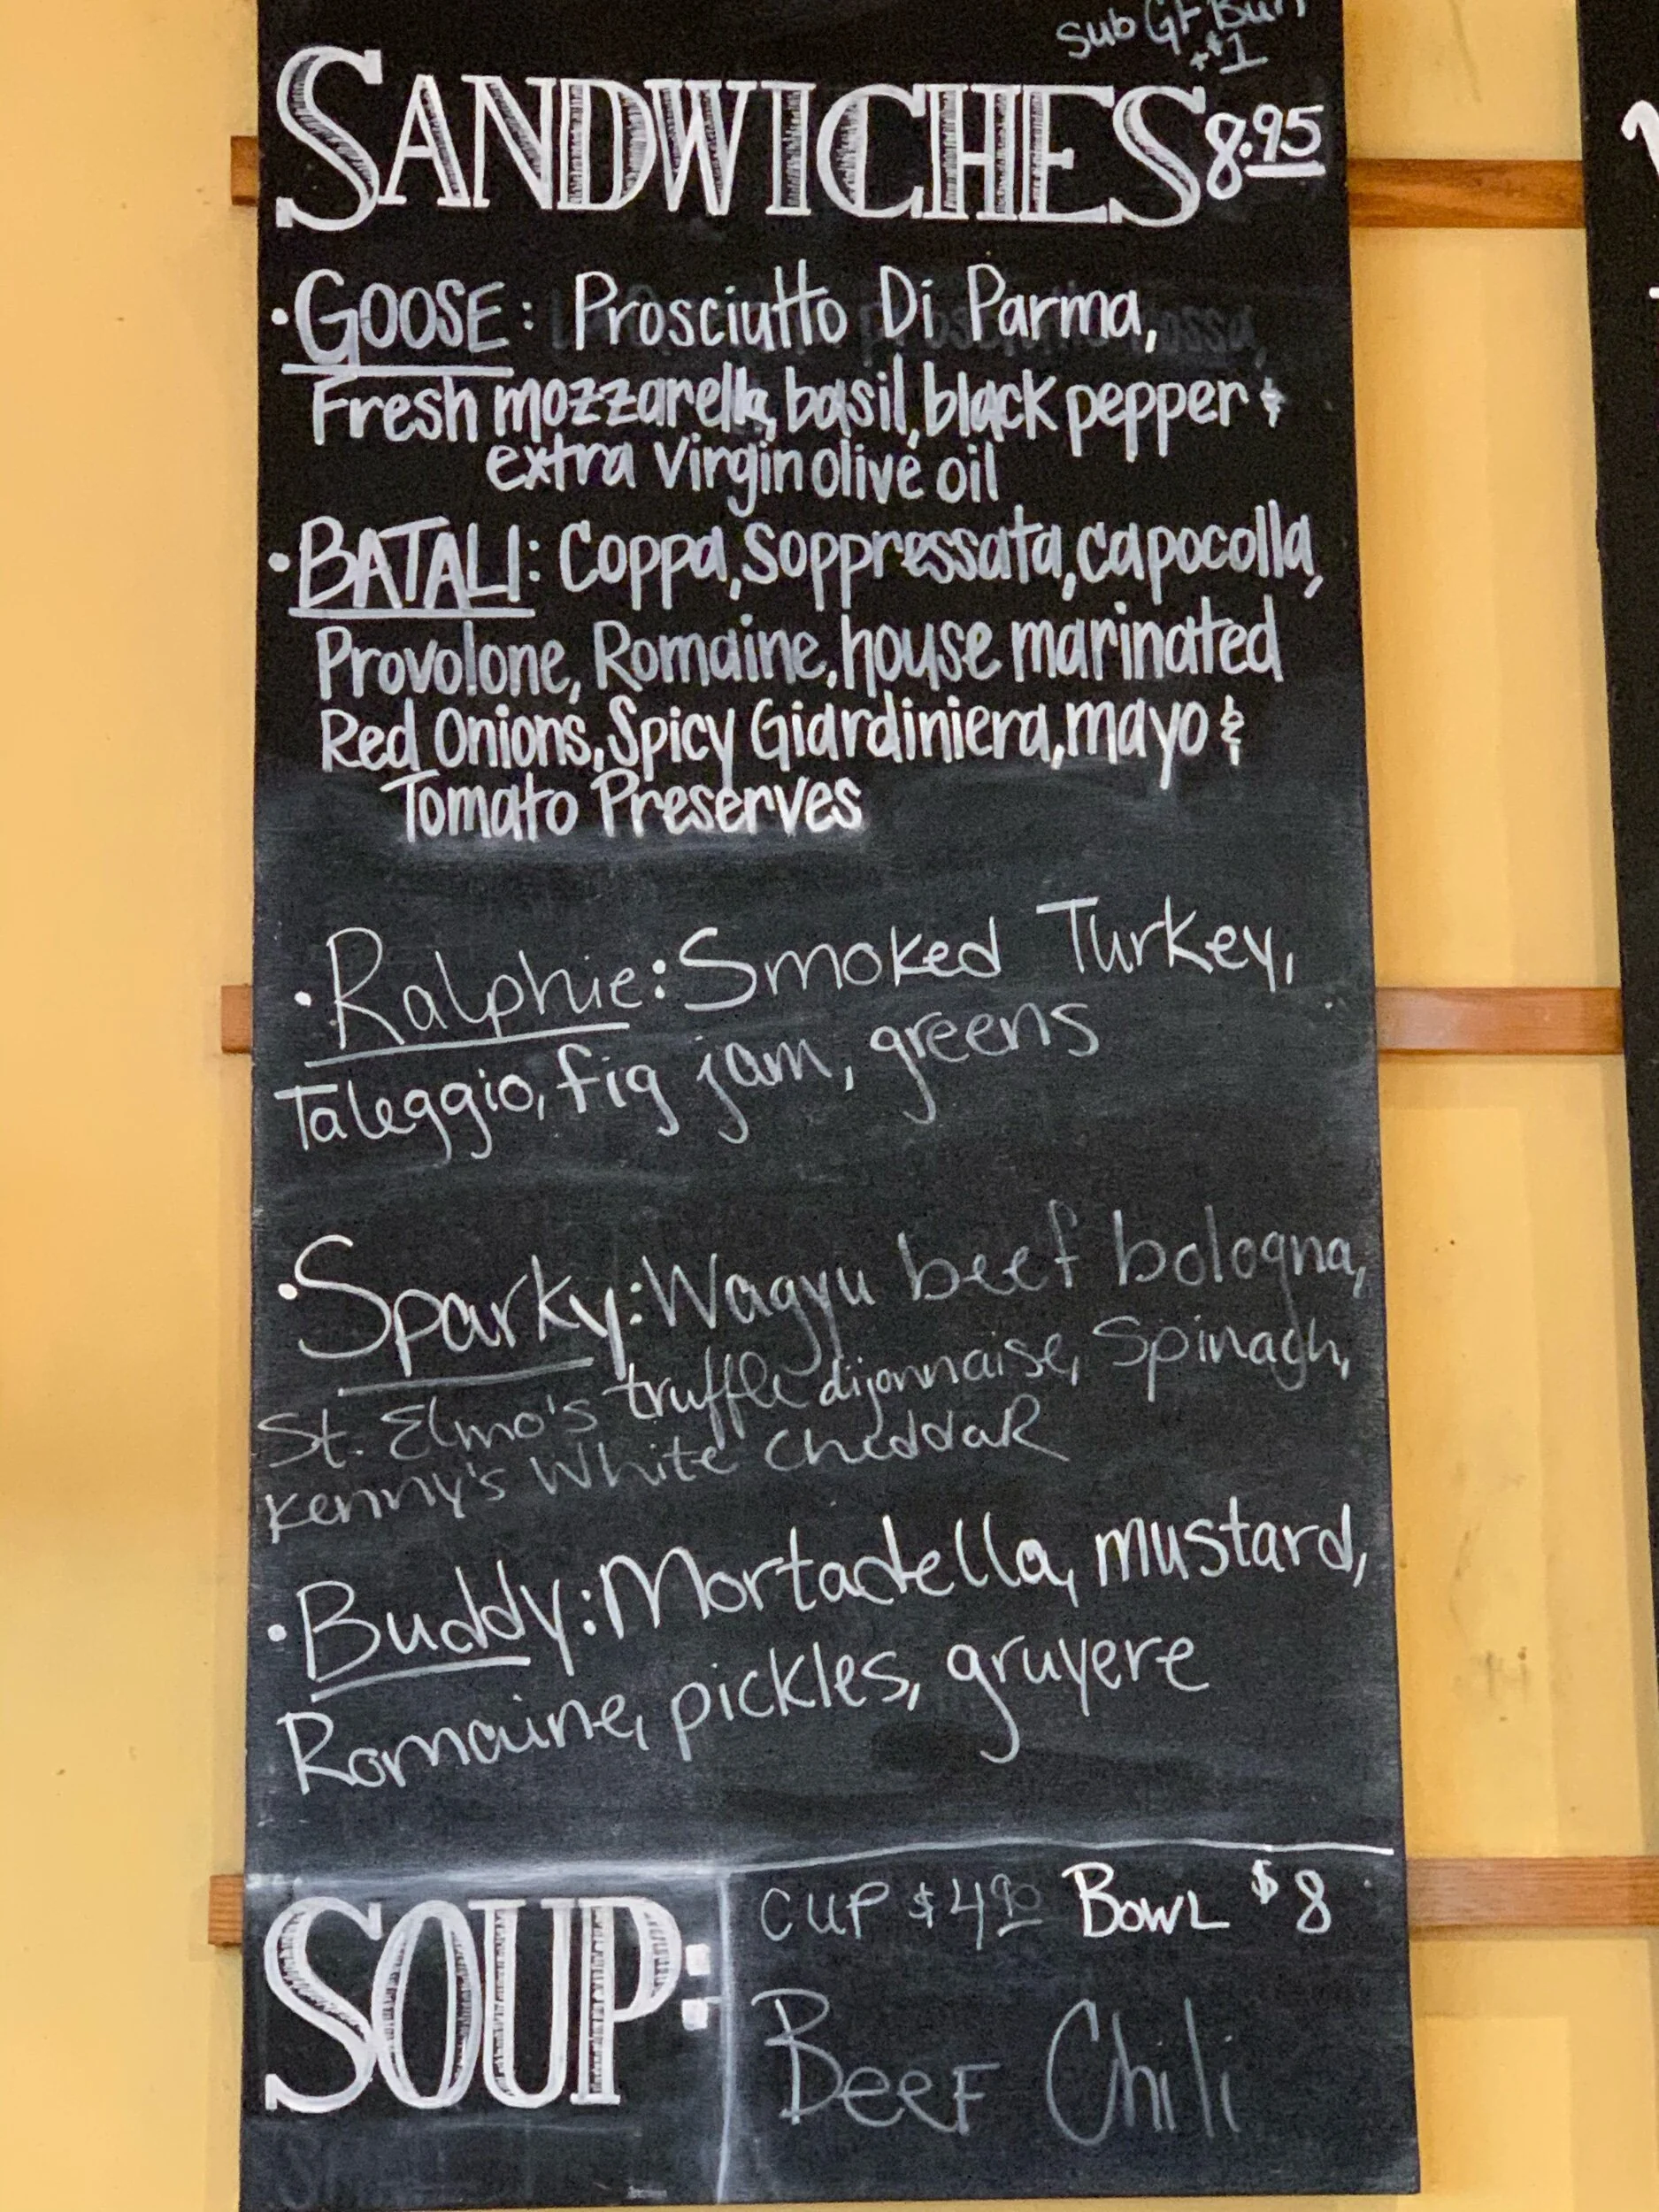 Sub GF Bun
+$1
SANDWICHES 8.95
• GOOSE: Prosciutto Di Parma,
Fresh mozzarella, basil, black pepper &
extra Virgin olive oil
• BATALI: Coppa, Soppressata, capocolla,
Provolone, Romaine, house marinated
Red Onions, Spicy Giardiniera, mayo &
Tomato Preserves
• Ralphie: Smoked Turkey,
Taleggio, fig jam, greens
• Sparky: Wagyu beef bologna,
St. Elmo's truffle dijonnaise, Spinach,
Kenny's White Cheddar
• Buddy: Mortadella, mustard,
Romaine, pickles, gruyere
SOUP:
CUP $4.90 BOWL $8
Beef Chili